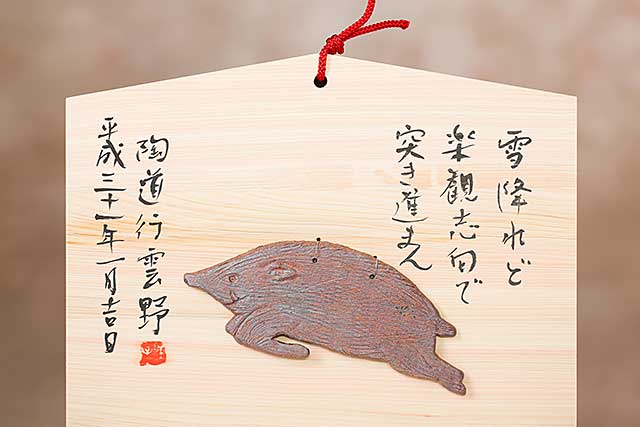 雪降れど
楽観志向で
突き進まん
陶道行雲野
平成三十一年一月吉日